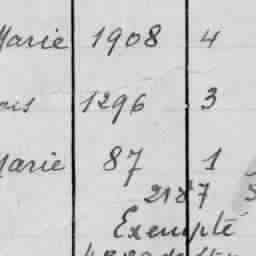 Marie 1908 4
ois 1296 3
Marie 87 1
2187
Exempté